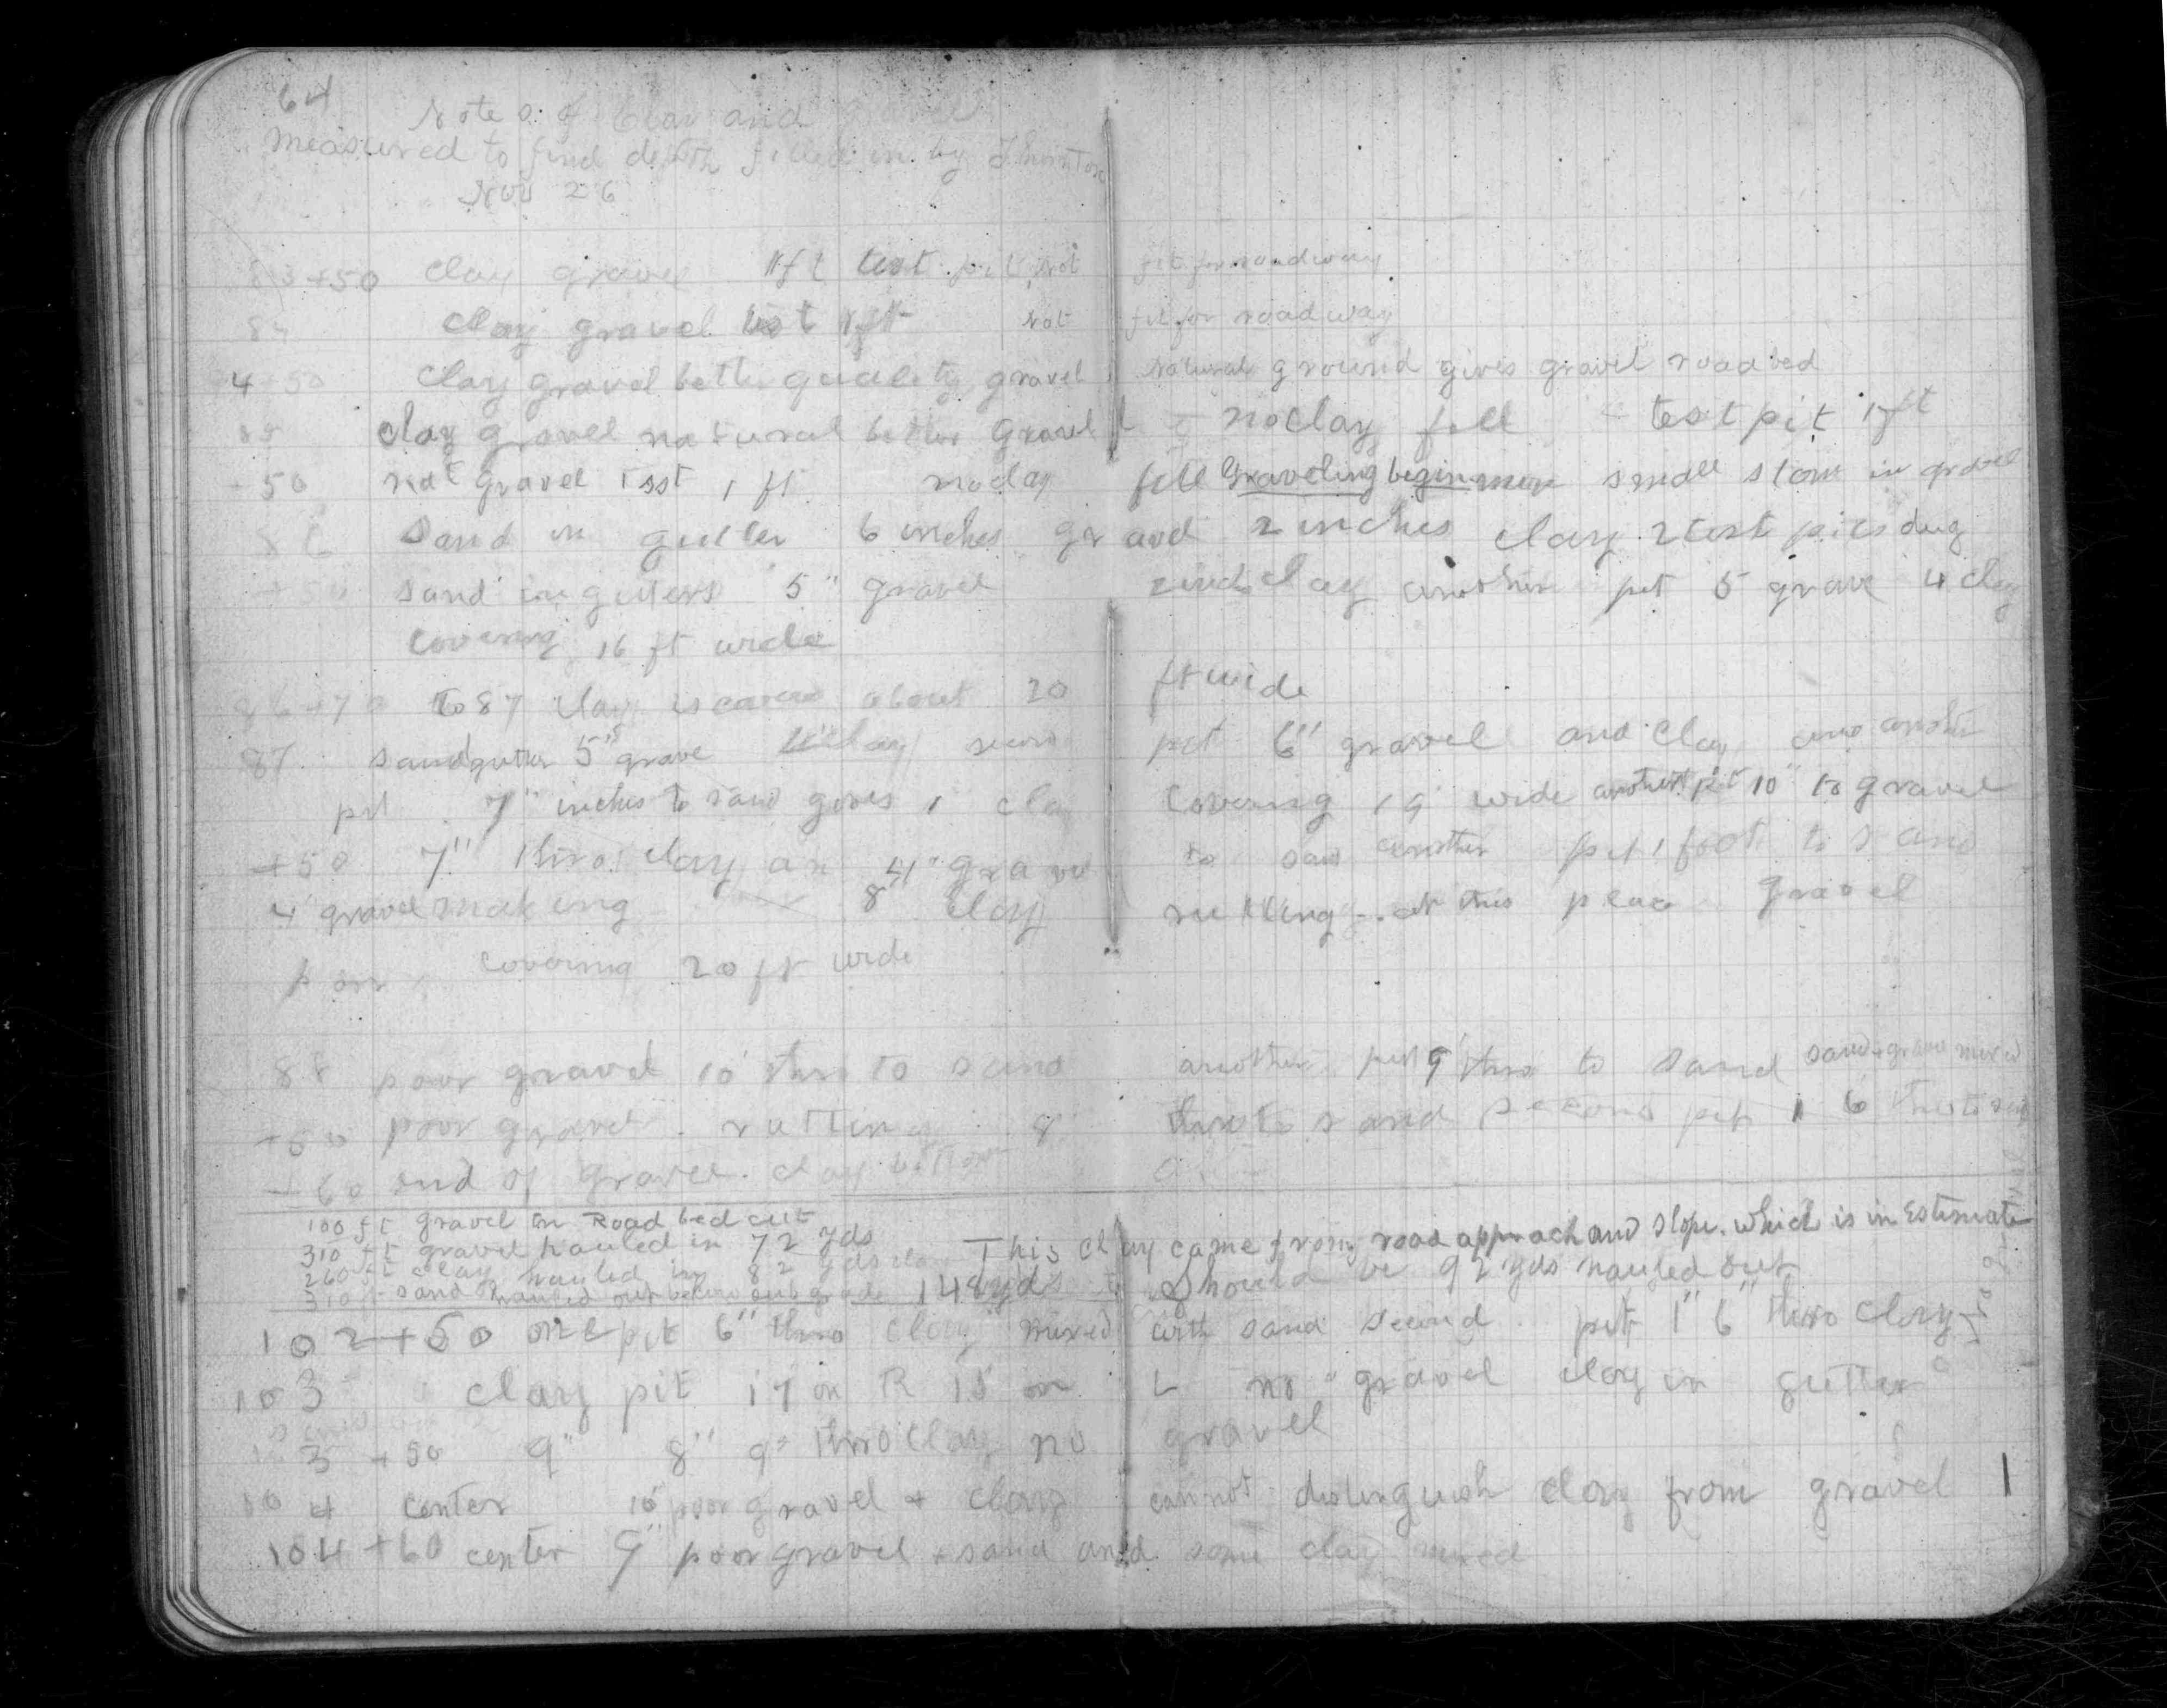 64
Notes of Clay and Gravel
Measured to find depth filled in by Thornton
Nov 26
83+50 Clay gravel 1ft test pit not fit for roadway
84 Clay gravel test 1ft not fit for roadway
4+50 Clay gravel better quality gravel natural ground gives gravel roadbed
85 clay gravel natural better Gravel no clay fill test pit 1ft
+50 nat Gravel Tsst 1 ft no clay fill Graveling begin small stone in gravel
86 Sand in gutter 6 inches gravel 2 inches clay 2 test pits dug
+50 sand in gutters 5" gravel clay another pit 5 grave 4 clay
Covering 16 ft wide
86+70 to 87 clay is about 20 ft wide
87 sand gutter 5" grave clay pit 6" gravel and clay another
pit 7" inches to sand gives 1 clay Covering 19 wide another pit 10" to gravel
+50 7" thro clay 4" gravel to sand another pit 1 foot to sand
4" gravel making 8" clay rutting at this place gravel
poor covering 20 ft wide
88 poor gravel 10 thro to sand another pit 9" thro to sand sand & gravel mixed
+50 poor gravel rutting 8 thro to sand second pit 1 6 thro to sand
+60 end of gravel. clay bottom
100 ft gravel in Road bed cut
310 ft gravel hauled in 72 yds
260 ft clay hauled in 82 yds This clay came from road approach and slope. which is in Estimate
310 ft sand hauled out below sub grade 148 yds Should be 92 yds hauled out
102+50 one pit 6" thro clay mixed with sand second pit 1" 6" thro clay
103 clay pit 17 on R 15 on L no gravel clay in gutter
103+50 9" 8" 9" thro clay no gravel
104 center 10" poor gravel & clay cannot distinguish clay from gravel
104+60 center 9" poor gravel & sand and some clay mixed